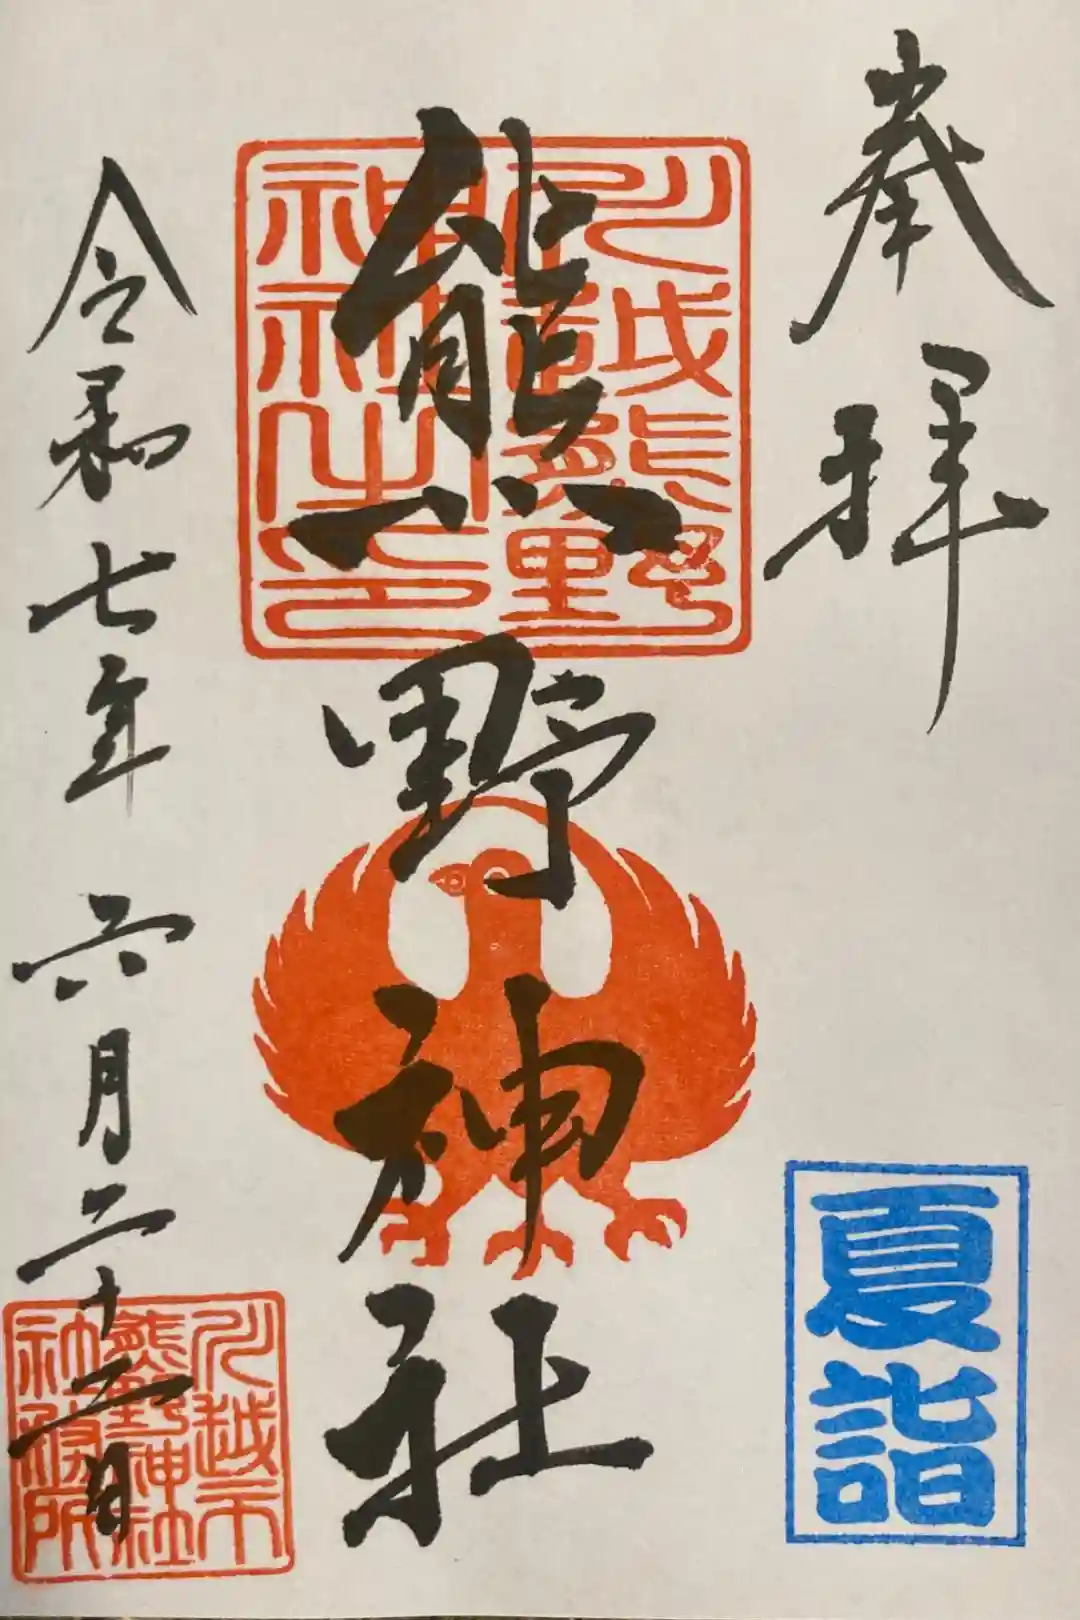 奉拝
夏詣
川越熊野
神社之印
熊野神社
令和七年六月二十二日
川越市
熊野神社
社務所